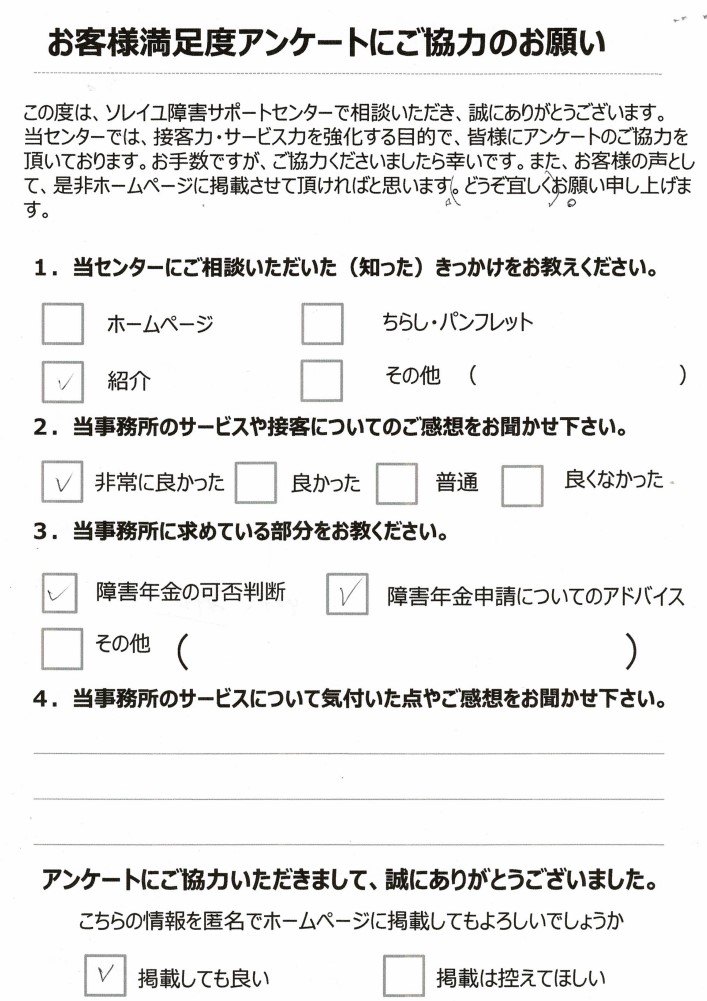 お客様満足度アンケートにご協力のお願い
この度は、ソレイユ障害サポートセンターで相談いただき、誠にありがとうございます。
当センターでは、接客力・サービス力を強化する目的で、皆様にアンケートのご協力を
頂いております。お手数ですが、ご協力くださいましたら幸いです。また、お客様の声とし
て、是非ホームページに掲載させて頂ければと思います。どうぞ宜しくお願い申し上げま
す。
1．当センターにご相談いただいた（知った）きっかけをお教えください。
□ ホームページ □ ちらし・パンフレット
☑ 紹介 □ その他 （ ）
2．当事務所のサービスや接客についてのご感想をお聞かせ下さい。
☑ 非常に良かった □ 良かった □ 普通 □ 良くなかった
3．当事務所に求めている部分をお教ください。
☑ 障害年金の可否判断 ☑ 障害年金申請についてのアドバイス
□ その他 （ ）
4．当事務所のサービスについて気付いた点やご感想をお聞かせ下さい。
アンケートにご協力いただきまして、誠にありがとうございました。
こちらの情報を匿名でホームページに掲載してもよろしいでしょうか
☑ 掲載しても良い □ 掲載は控えてほしい